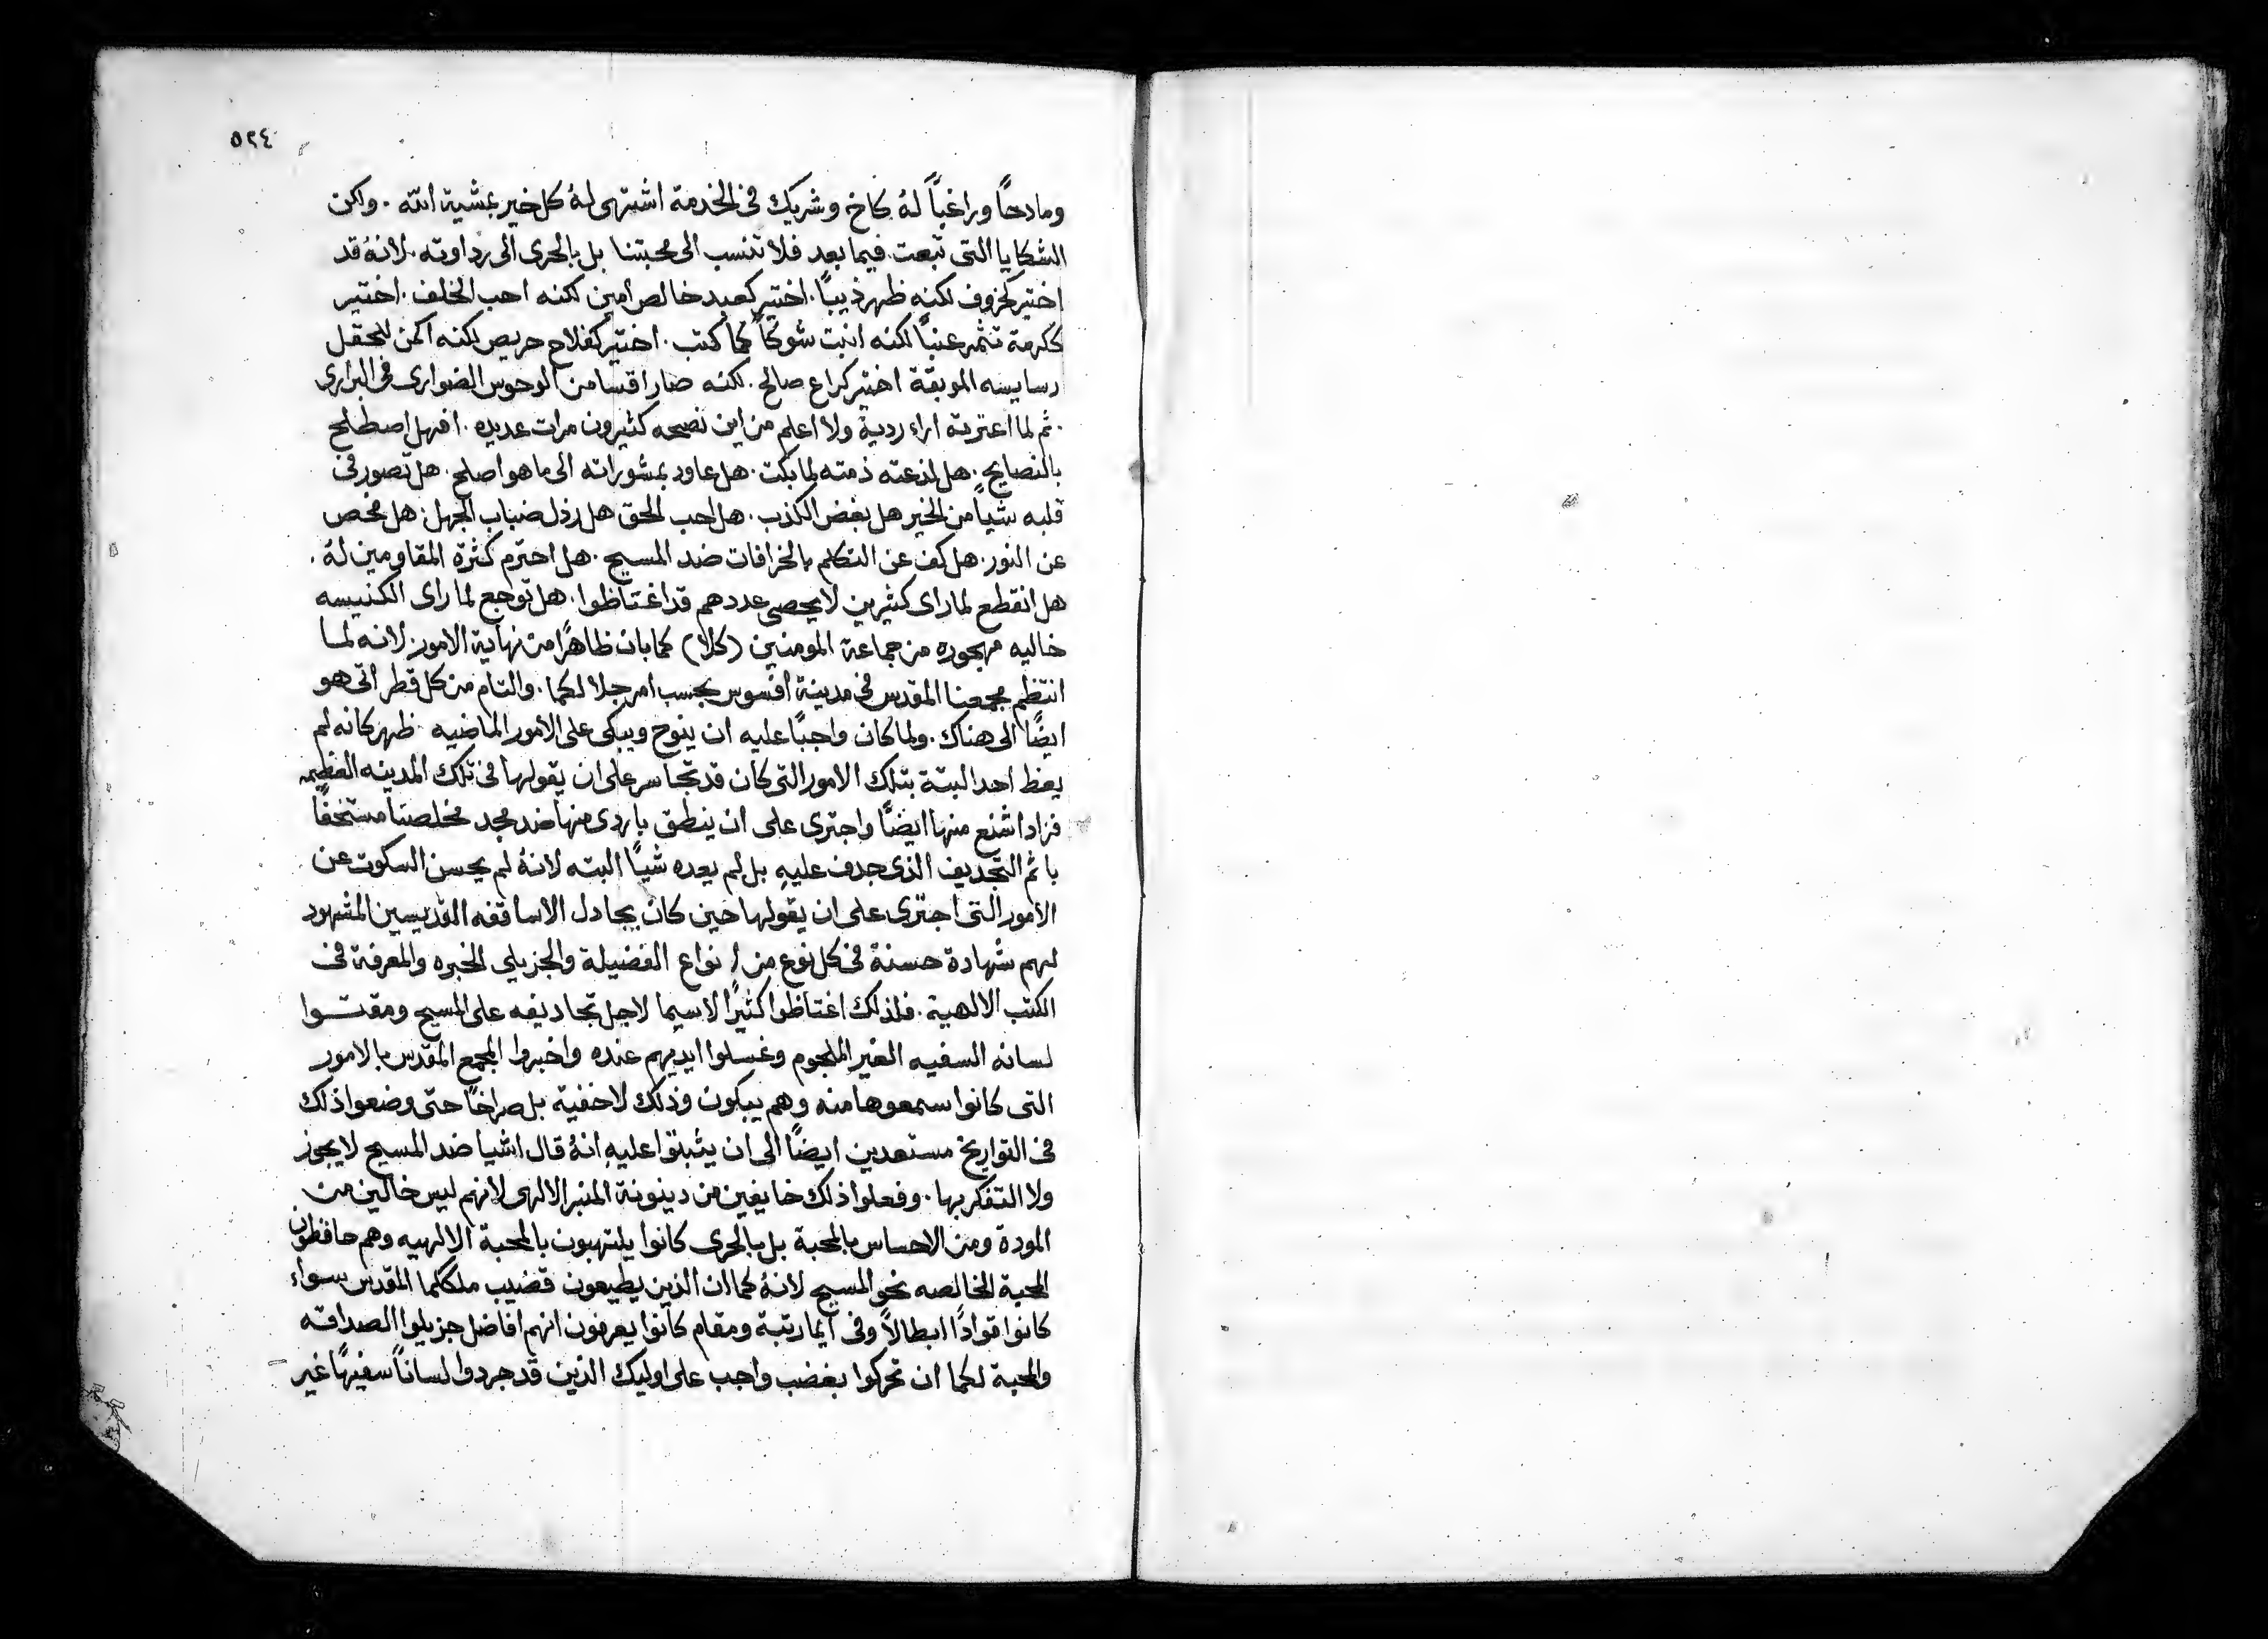 ٥٢٤
ومادحًا وراغبًا لهُ كاخ وشريك فى الخدمة اشتهى لهُ كل خير بمشية الله . ولكن
الشكايا التى تبعت فيما بعد فلا تنسب الى محبتنا بل بالحرى الى رداوته . لانهُ قد
اختير كخروف لكنه ظهر ذيبًا . اختير كعبد خالص امين لكنه احب الخلف . اختير
ككرمة تثمر عنبًا لكنه انبت شوكًا كما كتب . اختير كفلاح حريص لكنه اكمن للحقل
رسايسه الموبقة اختير كراع صالح . لكنه صار اقسا من الوحوس الضوارى فى البرارى
. ثم لما اعترته اراء ردية ولا اعلم من اين نصحه كثيرون مرات عديده . افهل اصطلح
بالنصايح . هل لذعته ذمته لما بكت . هل عاود بمشوراته الى ما هو اصلح . هل تصور فى
قلبه شيًا من الخير هل بغض الكذب . هل احب الحق هل رذل ضباب الجهل . هل فحص
عن النور . هل كف عن التكلم بالخرافات ضد المسيح . هل احترم كثرة المقاومين لهُ .
هل انقطع لما راى كثيرين لا يحصى عددهم قد اغتاظوا . هل توجع لما راى الكنيسه
خاليه مهجوره من جماعة المومنين (كلا) كما بان ظاهرًا من نهاية الامور لانه لما
انتظم مجمعنا المقدس فى مدينة افسوس بحسب امر جلالكما . والتام من كل قطر اتى هو
ايضًا الى هناك . ولما كان واجبًا عليه ان ينوح ويبكى على الامور الماضيه . ظهر كانه لم
يغظ احد البتة بتلك الامور التى كان قد تجاسر على ان يقولها فى تلك المدينه العظيمه
فزاد اشنع منها ايضًا واجترى على ان ينطق باردى منها ضد مجد مخلصنا مستخفًا
باثم التجديف الذى جدف عليهِ بل لم يعده شيًا البته لانهُ لم يحسن السكوت عن
الامور التى اجترى على ان يقولها حين كان يجادل الاساقفه القديسين المشهود
لهم شهادة حسنة فى كل نوع من انواع الفضيلة والجزيلى الخبره والمعرفة فى
الكتب الالهية . فلذلك اغتاظوا كثيرًا لاسيما لاجل تجاديفه على المسيح ومقتوا
لسانه السفيه الغير الملجوم وغسلوا ايديهم عنده واخبروا المجمع المقدس بالامور
التى كانوا سمعوها منه وهم يبكون وذلك لا خفية بل صراخًا حتى وضعوا ذلك
فى التواريخ مستعدين ايضًا الى ان يثبتوا عليهِ انهُ قال اشيا ضد المسيح لا يجوز
ولا التفكر بها . وفعلوا ذلك خايفين من دينونة المنبر الالهى لانهم ليس خالين من
المودة ومن الاحساس بالمحبة بل بالحرى كانوا يلتهبون بالمحبة الالهيه وهم حافظون
المحبة الخالصه نحو المسيح لانهُ كما ان الذين يطيعون قضيب ملككما المقدس سواء
كانوا قوادًا ابطالاً وفى ايما رتبة ومقام كانوا يعرفون انهم افاضل جزيلوا الصداقه
والمحبة لكما ان تحركوا بغضب واجب على اوليك الذين قد جردوا لسانًا سفيهًا غير